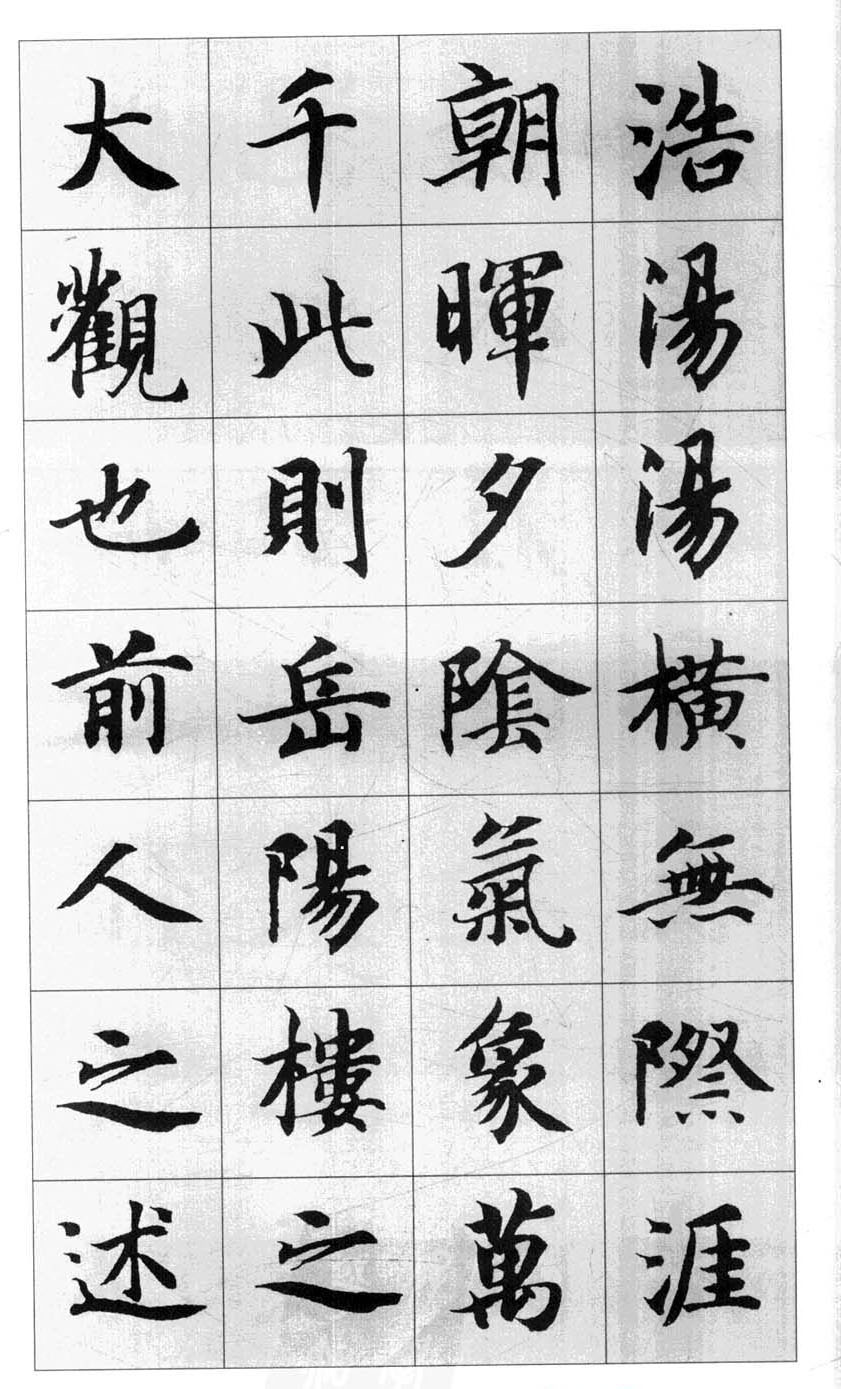 浩湯湯橫無際涯
朝暉夕陰氣象萬
千此則岳陽樓之
大觀也前人之述